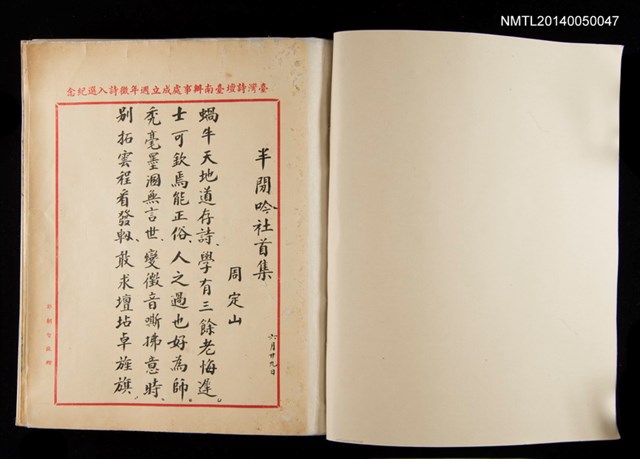 NMTL20140050047
臺灣詩壇臺南辦事處成立週年徵詩入選紀念
半閒吟社首集
周定山
六月廿九日
蝸牛天地道存詩、學有三餘老悔遲。
士可欽焉能正俗、人之過也好為師。
禿毫墨涸無言世、變徵音嘶拂意時、
別拓雲程看發軔、敢求壇坫卓旌旗。